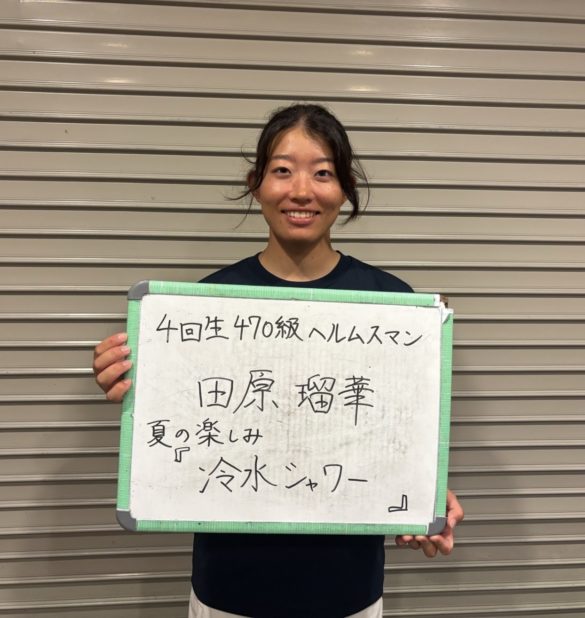 4回生 470級 ヘルムスマン
田原 瑠華
夏の楽しみ
『冷水シャワー』